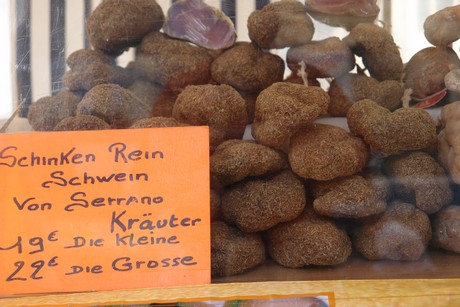 Schinken Rein
Schwein
Von Serrano
Kräuter
19€ Die Kleine
22€ Die Grosse